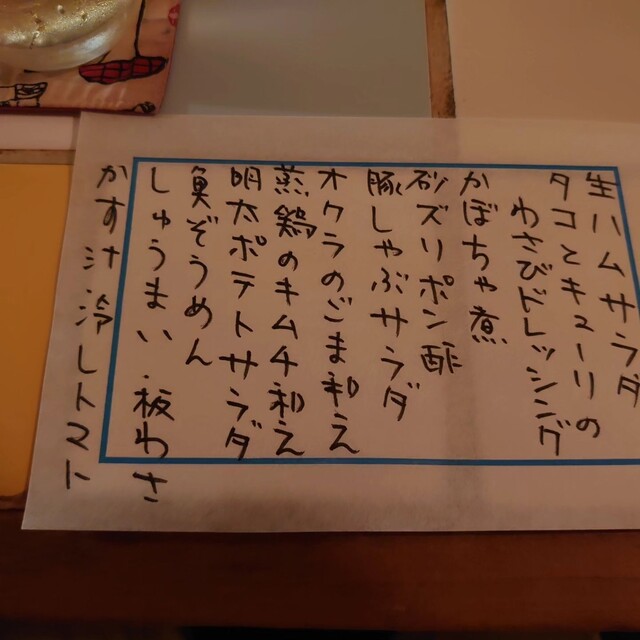 生ハムサラダ
タコとキューリの
わさびドレッシング
かぼちゃ煮
砂ズリポン酢
豚しゃぶサラダ
オクラのごま和え
蒸鶏のキムチ和え
明太ポテトサラダ
魚ぞうめん
しゅうまい.板わさ
かす汁 冷しトマト